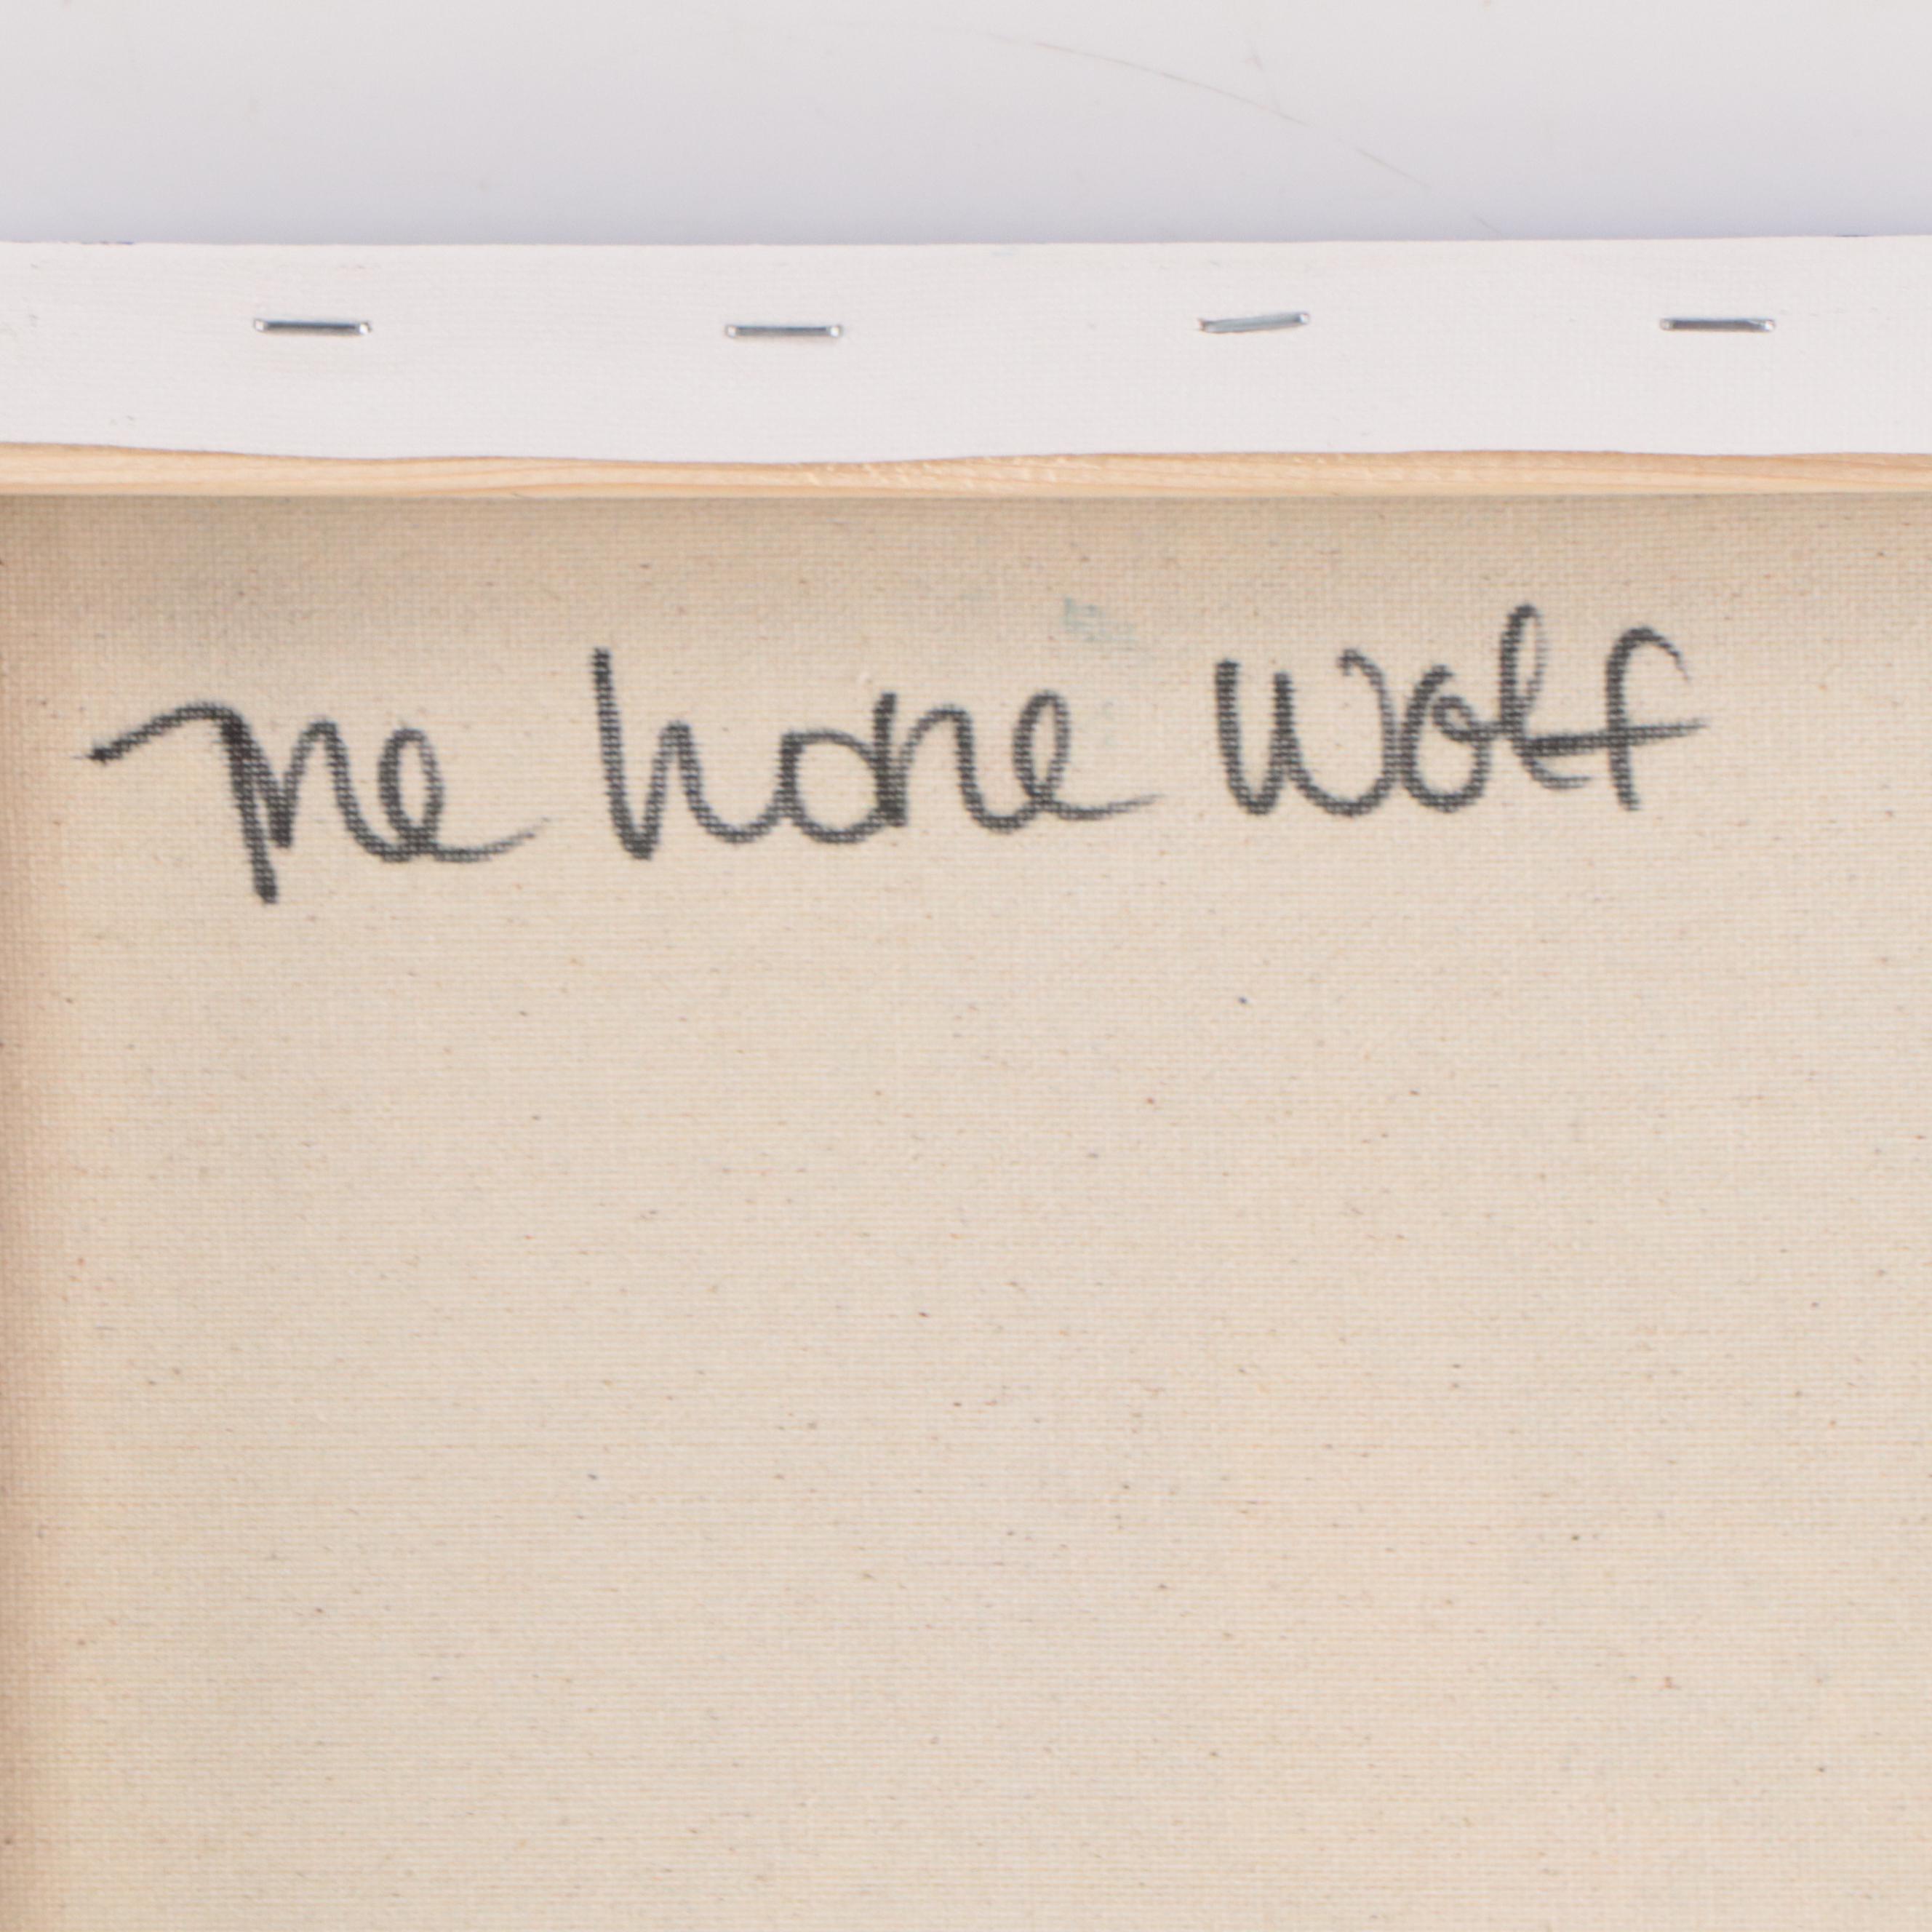 The Lone Wolf